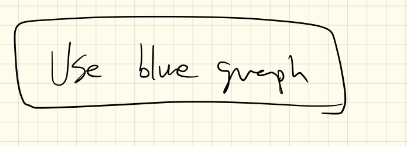 Use blue graph